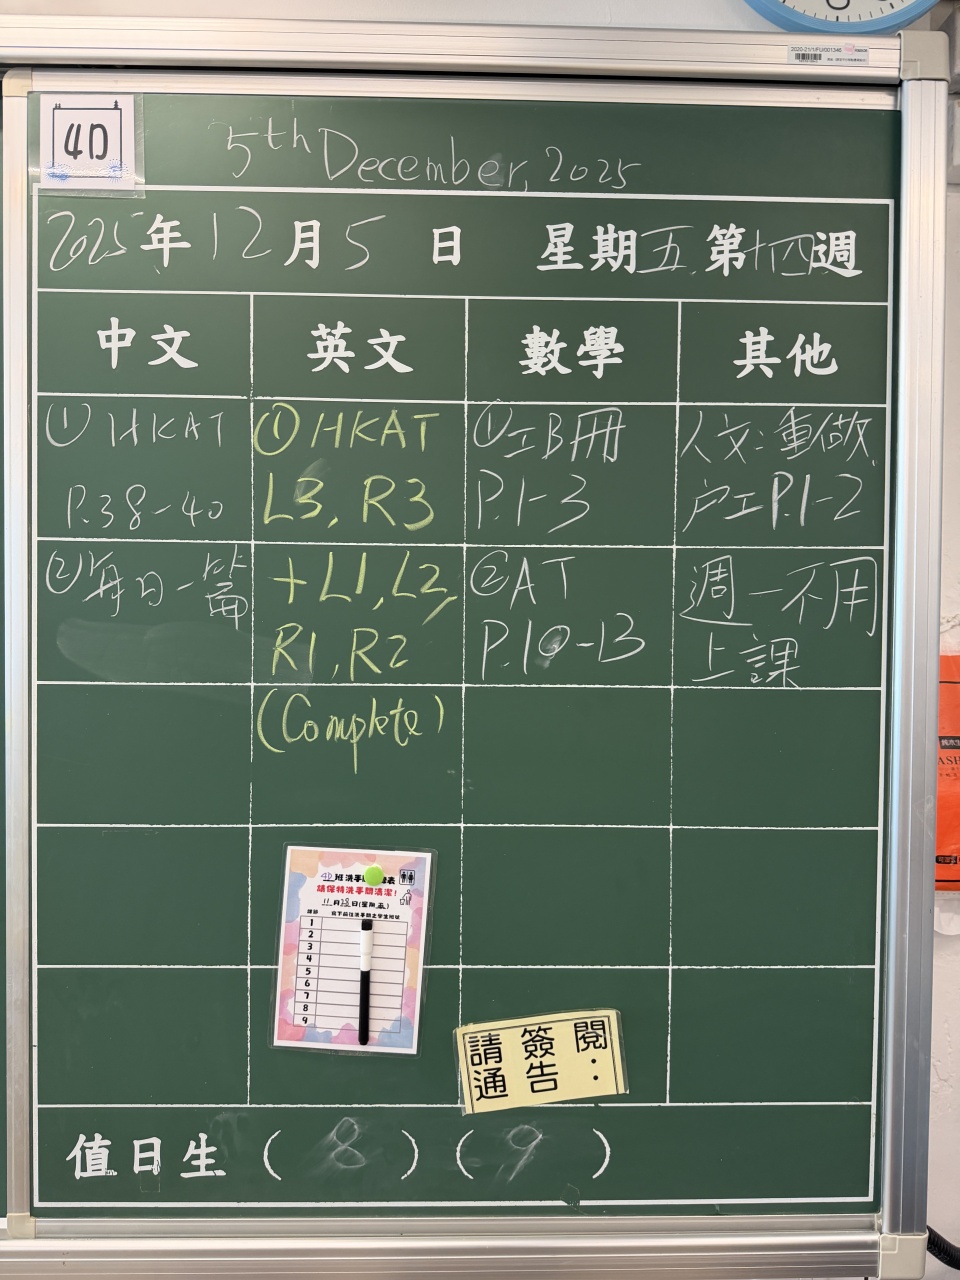 2020-21/1/FU/001346
4D
5th December, 2025
2025年12月5日 星期五 第十四週
中文 英文 數學 其他
① HKAT
P.38-40
② 每日一篇
① HKAT
L3, R3
+L1, L2,
R1, R2
(Complete)
① 工B冊
P.1-3
② AT
P.10-13
人文：重做
戶工P.1-2
週一不用
上課
4D班洗手間
表
請保持洗手間清潔！
11月28日(星期五)
寫下前往洗手間之學生班號
1
2
3
4
5
6
7
8
9
請簽閱
通告：
值日生 ( 8 ) ( 9 )